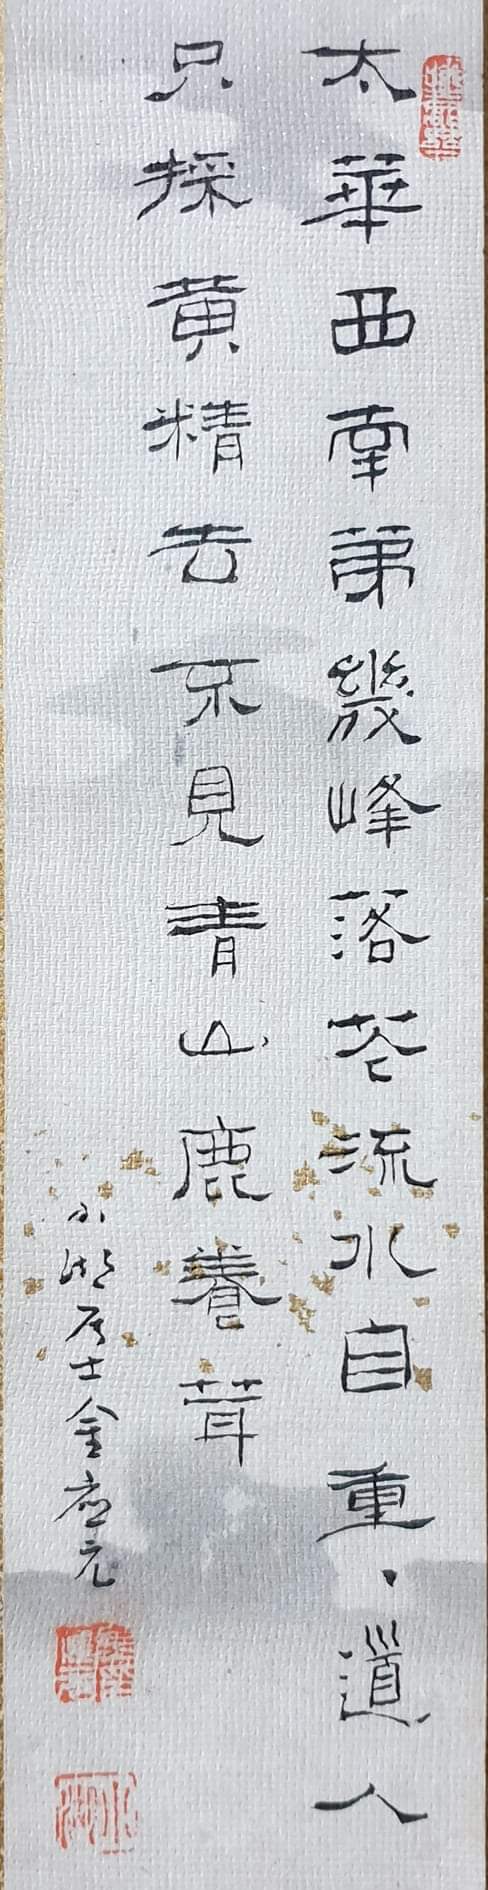 太華西南第幾峰落花流水自重ヽ道人
只採黃精去不見青山鹿養茸
小湖居士金應元